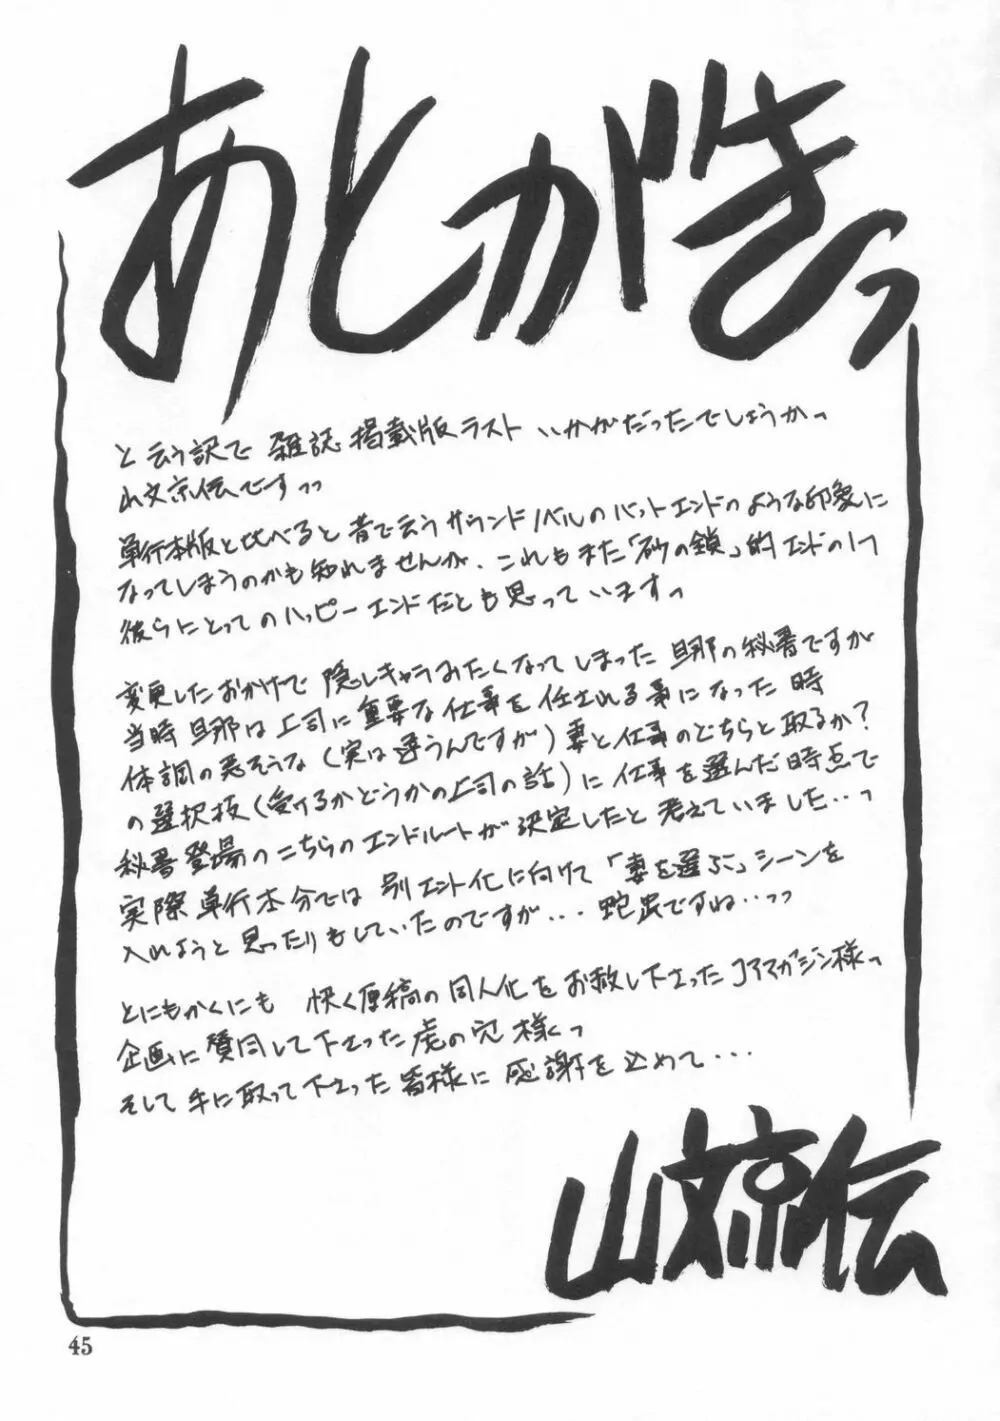 あとがきっ
と云う訳で 雑誌掲載版ラスト いかがだったでしょうかっ
山文京伝ですっっ
単行本版と比べると 昔で云うサウンドノベルのバットエンドのような印象に
なってしまうのかも知れませんが、これもまた「砂の鎖」的エンドの1つ
彼らにとってのハッピーエンドだとも思っていますっ
変更したおかげで 隠しキャラみたくなってしまった 旦那の秘書ですが
当時 旦那は上司に重要な仕事を任される事になった時
体調の悪そうな(実は違うんですが)妻と仕事のどちらと取るか?
の選択枝(受けるかどうかの上司の話)に 仕事を選んだ時点で
秘書登場のこちらのエンドルートが決定したと 考えていました...っ
実際単行本分では 別エンド化に向けて「妻を選ぶ」シーンを
入れようと思ったりもしていたのですが... 蛇足ですね...っっ
とにもかくにも 快く原稿の同人化をお赦し下さったコアマガジン様っ
企画に賛同して下さった虎の穴様くっ
そして手に取って下さった皆様に 感謝を込めて...
山文京伝
45